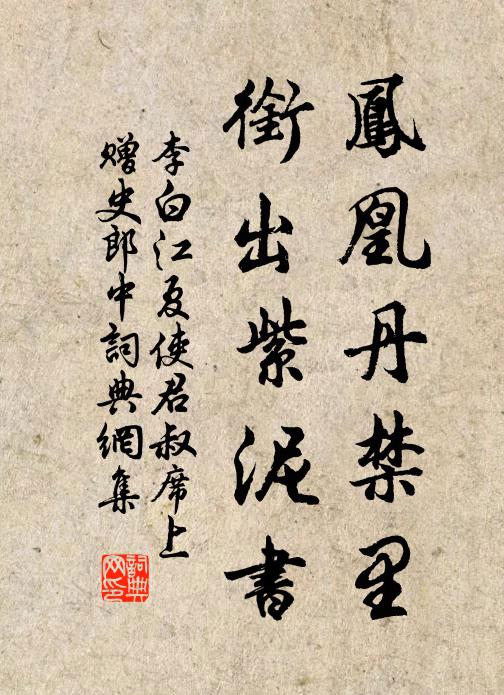 鳳凰丹禁里
銜出紫泥書
李白江夏使君叔席上
贈史郎中詞典網集
詞典
网印